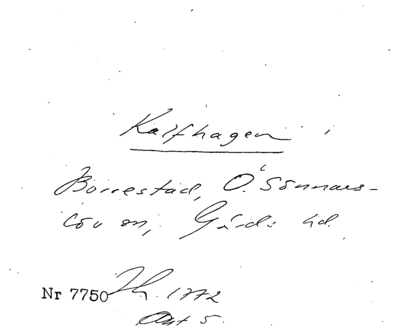 Kalfhagen i
Borrestad, Ö. Sönnars-
löv sn, Gärds hd.
Nr 7750 Th. 1772
Akt 5.